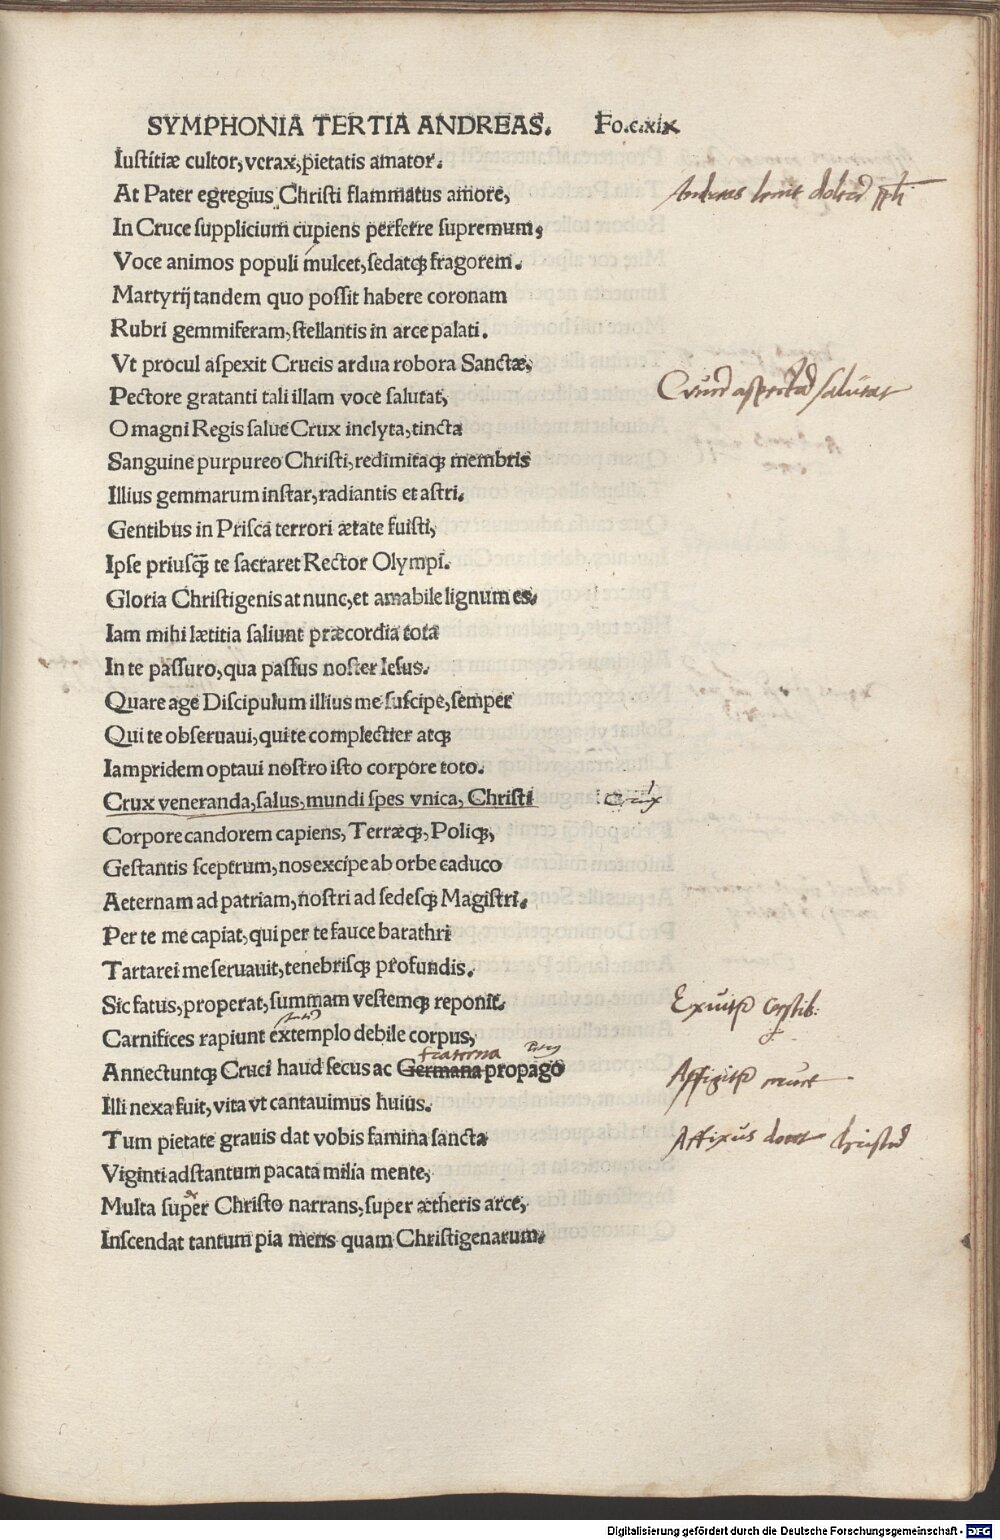 SYMPHONIA TERTIA ANDREAS. Fo.c.xix
Iustitiæ cultor, verax, pietatis amator.
At Pater egregius Christi flammatus amore,
In Cruce supplicium cupiens perferre supremum,
Voce animos populi mulcet, sedatqꝫ fragorem.
Martyrij tandem quo possit habere coronam
Rubri gemmiferam, stellantis in arce palati.
Vt procul aspexit Crucis ardua robora Sanctæ,
Crucem aspectam salutat
Pectore gratanti tali illam voce salutat,
O magni Regis salue Crux inclyta, tincta
Sanguine purpureo Christi, redimitaqꝫ membris
Illius gemmarum instar, radiantis et astri.
Gentibus in Prisca terrori ætate fuisti,
Ipse priusqꝫ̃ te sacraret Rector Olympi.
Gloria Christigenis at nunc, et amabile lignum es.
Iam mihi lætitia saliunt præcordia tota
In te passuro, qua passus noster Iesus.
Quare age Discipulum illius me suscipe, semper
Qui te obseruaui, qui te complectier atqꝫ
Iampridem optaui nostro isto corpore toto.
Crux veneranda, salus, mundi spes vnica, Christi
Crux
Corpore candorem capiens, Terræqꝫ, Poliqꝫ,
Gestantis sceptrum, nos excipe ab orbe caduco
Aeternam ad patriam, nostri ad sedesqꝫ Magistri.
Per te me capiat, qui per te fauce barathri
Tartarei me seruauit, tenebrisqꝫ profundis.
Sic fatus, properat, summam vestemqꝫ reponit.
Exuitur vestib.
Carnifices rapiunt extemplo debile corpus,
fraterna
Annectuntqꝫ Cruci haud secus ac Germana propago
Affigitur cruci
Illi nexa fuit, vita vt cantauimus huius.
Tum pietate grauis dat vobis famina sancta
Affixus docet Christum
Viginti adstantum pacata milia mente,
Multa super Christo narrans, super ætheris arce,
Inscendat tantum pia mens quam Christigenarum.
Digitalisierung gefördert durch die Deutsche Forschungsgemeinschaft - DFG